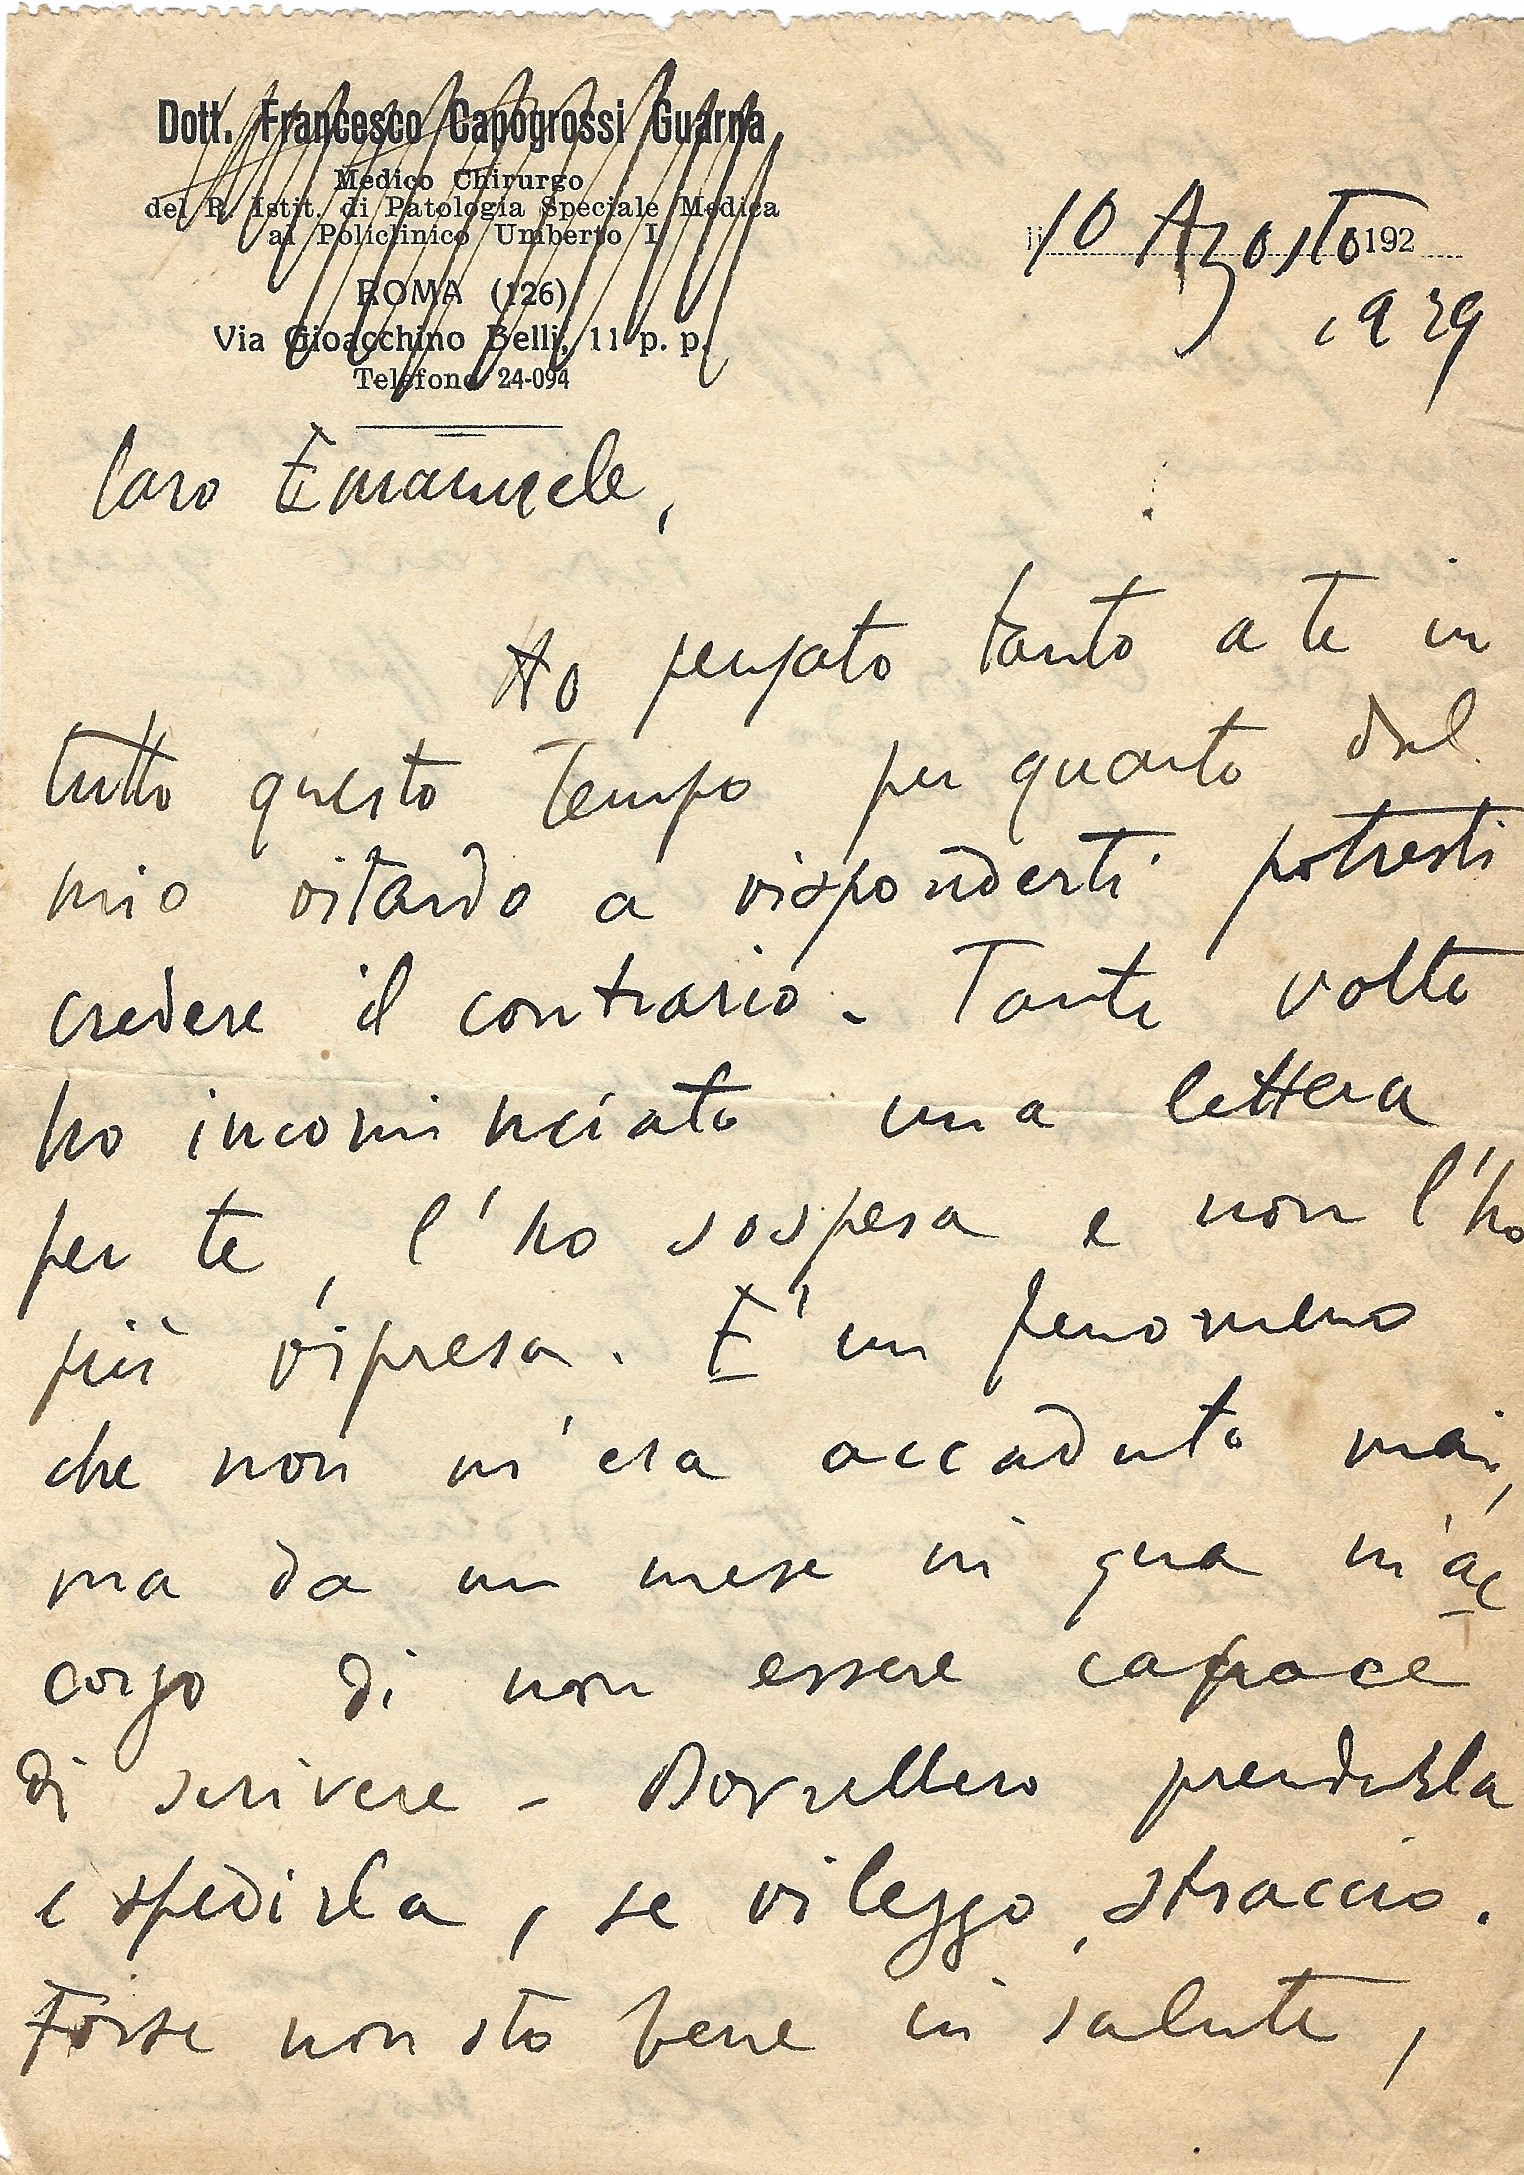 Dott. Francesco Capogrossi Guarna
Medico Chirurgo
del R. Istit. di Patologia Speciale Medica
al Policlinico Umberto I
ROMA (126)
Via Gioacchino Belli, 11 p. p.
Telefono 24-094
li 10 Agosto 192
1929
Caro Emanuele,
Ho pensato tanto a te in
tutto questo tempo per quanto dal
mio ritardo a risponderti potresti
credere il contrario. Tante volte
ho incominciato una lettera
per te, l'ho sospesa e non l'ho
più ripresa. E' un fenomeno
che non m'era accaduto mai,
ma da un mese in qua m'ac
corgo di non essere capace
di scrivere - Dovrebbero prenderla
e spedirla, se rileggo, straccio.
Forse non sto bene in salute,